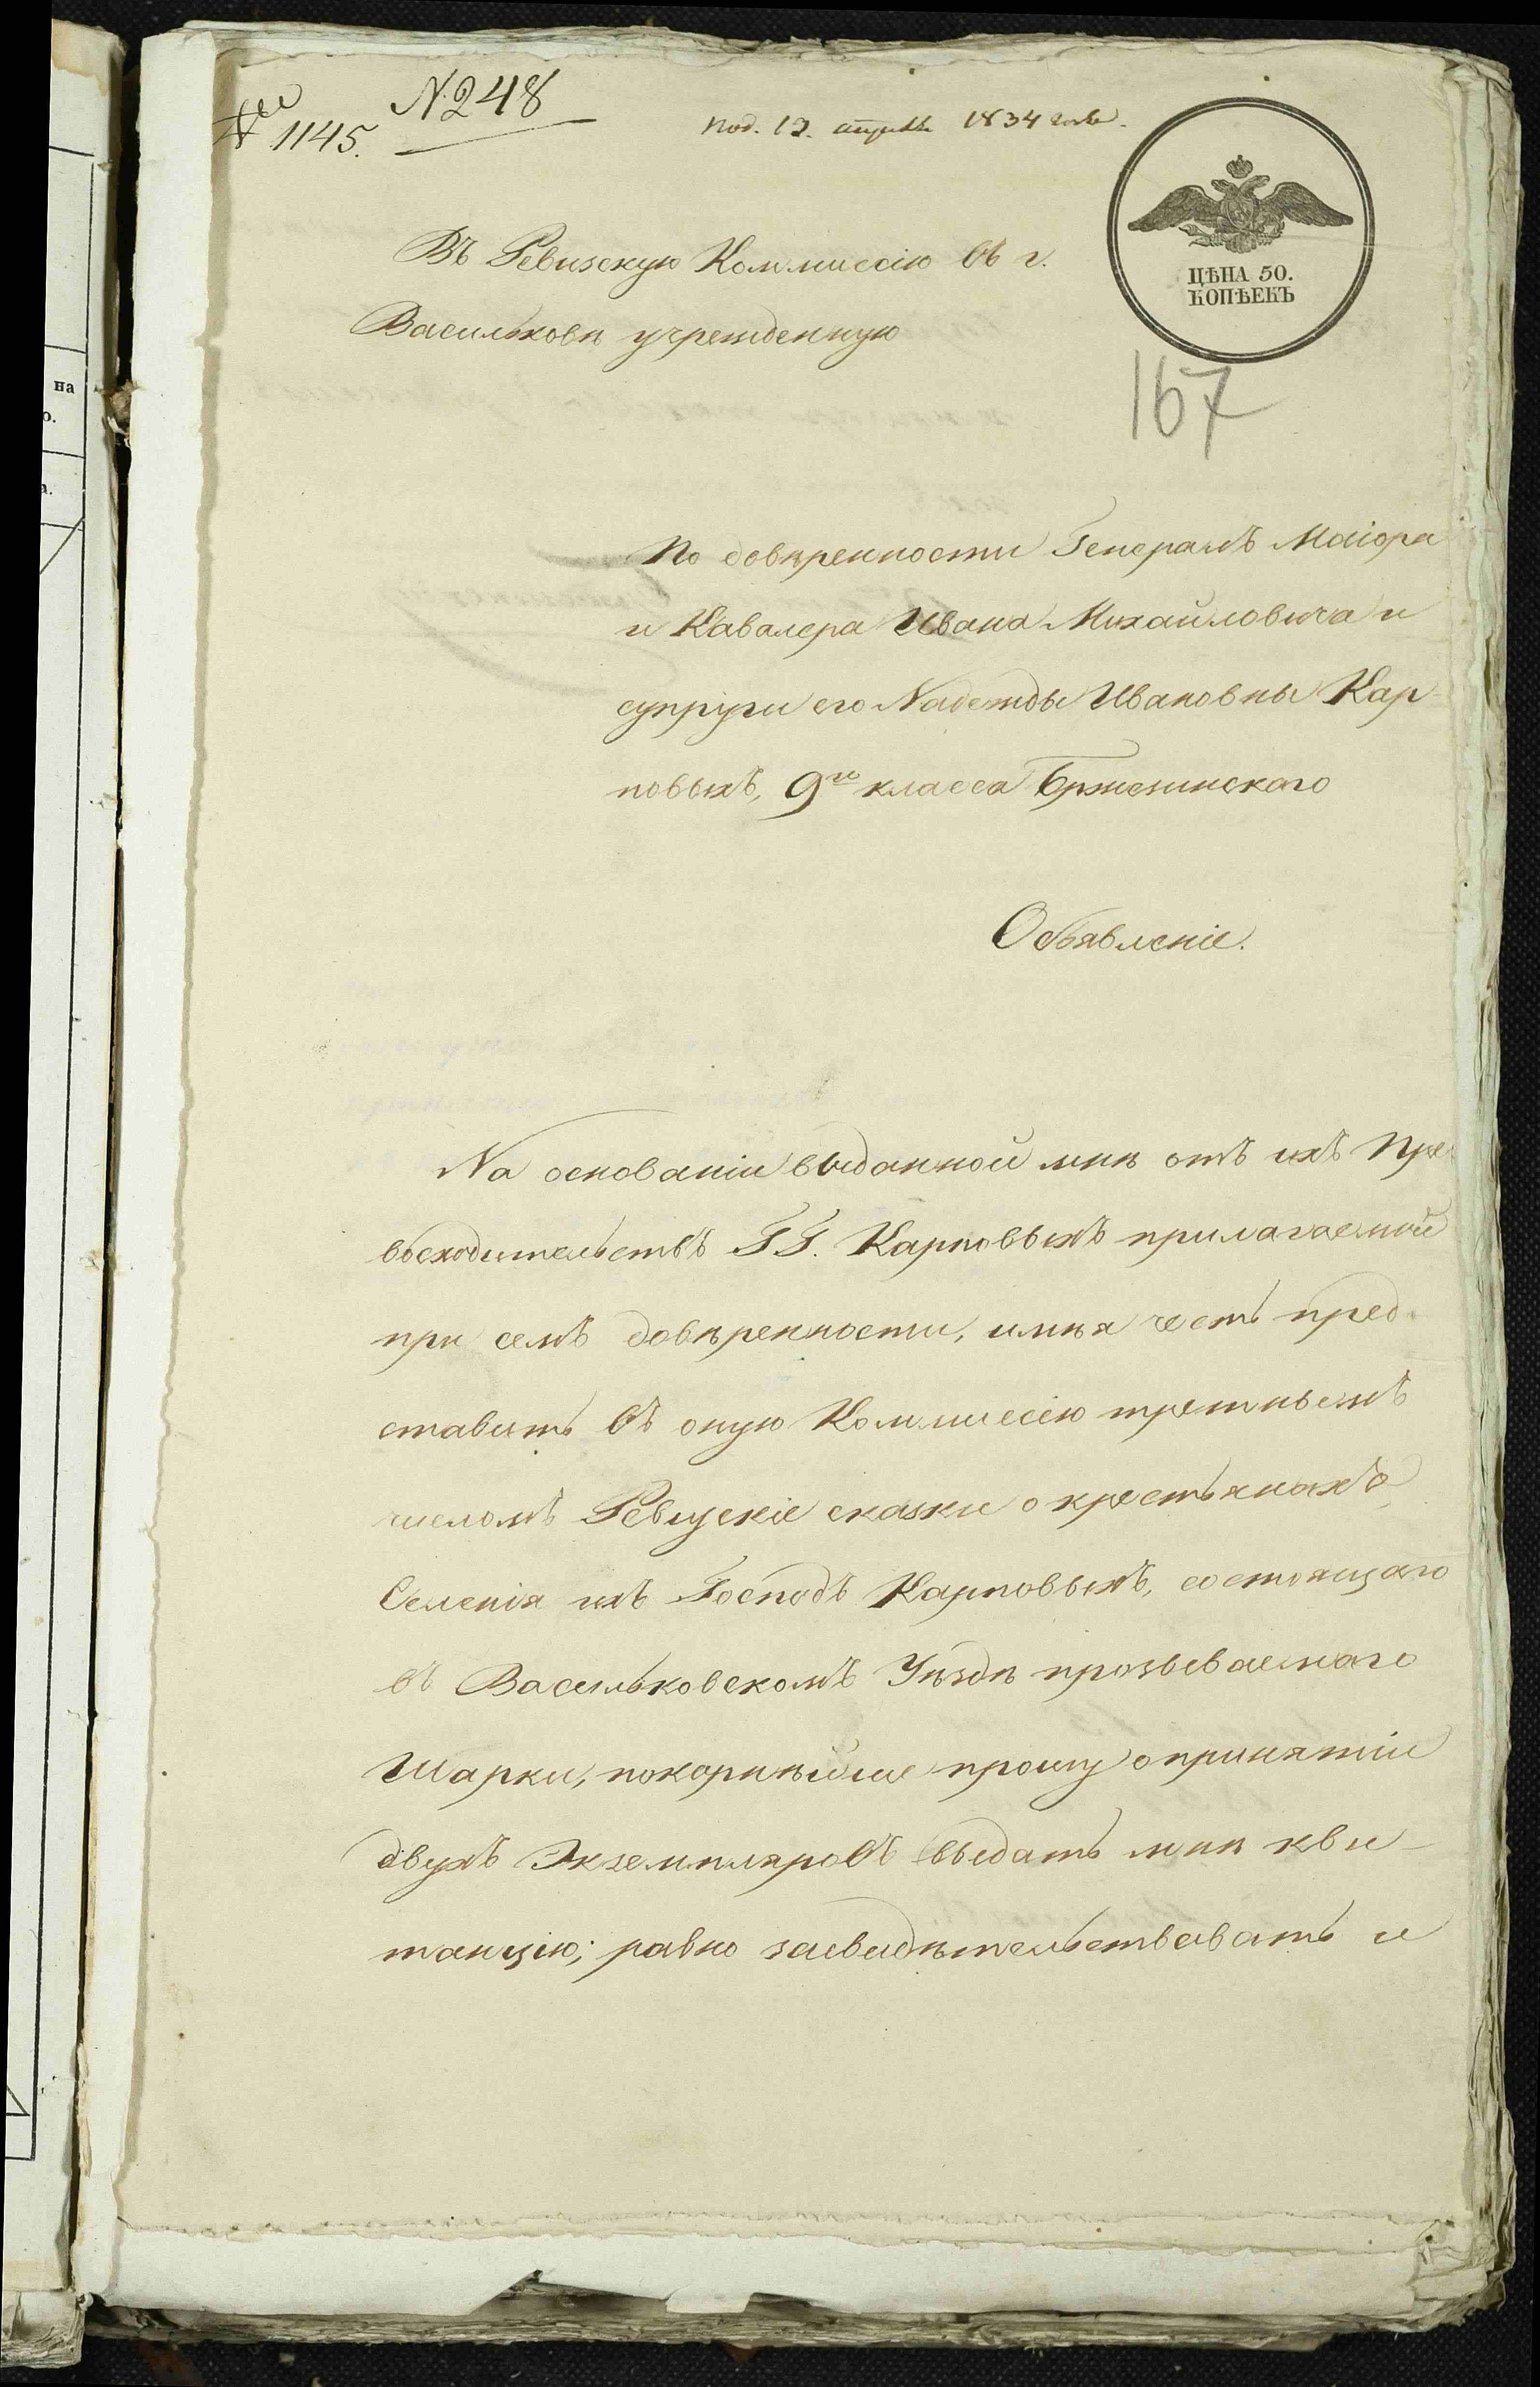 N. 248
1145.
под. 12. апреля 1834 года.
ЦѢНА 50.
КОПѢЕКЪ
Въ Ревизскую Коммиссію въ г.
Васильковѣ учрежденную
167
По довѣренности Генералъ Маіора
и Кавалера Ивана Михайловича и
супруги его Надежды Ивановны Кар-
повыхъ, 9го класса Бржезинскаго
Объявленіе.
На основаніи выданной мнѣ отъ ихъ Пре
восходительствъ ГГ. Карповыхъ прилагаемой
при семъ довѣренности, имѣя честь пред-
ставить въ оную Коммиссію третньемъ
числомъ Ревизскіе сказки о крестьянахъ
Селенія ихъ Господъ Карповыхъ, состоящаго
въ Васильковскомъ Уѣздѣ прозываемаго
Шарки, покорнѣйше прошу о принятіи
двухъ Экземпляровъ выдать мнѣ кви-
танцію; равно засвидѣтельствовать и
на
о.
а.